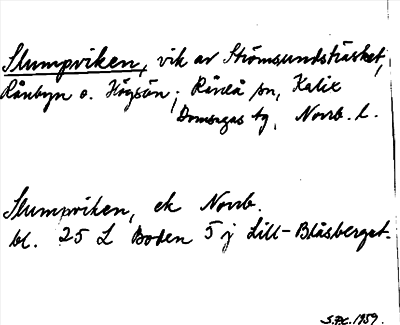 Slumpviken, vik av Strömsundsträsket,
Rånbyn o. Högsön; Råneå sn, Kalix
Domsagas tg, Norrb. l.
Slumpviken, ek Norrb.
bl. 25 L Boden 5 j Lill-Blåsberget.
1959.